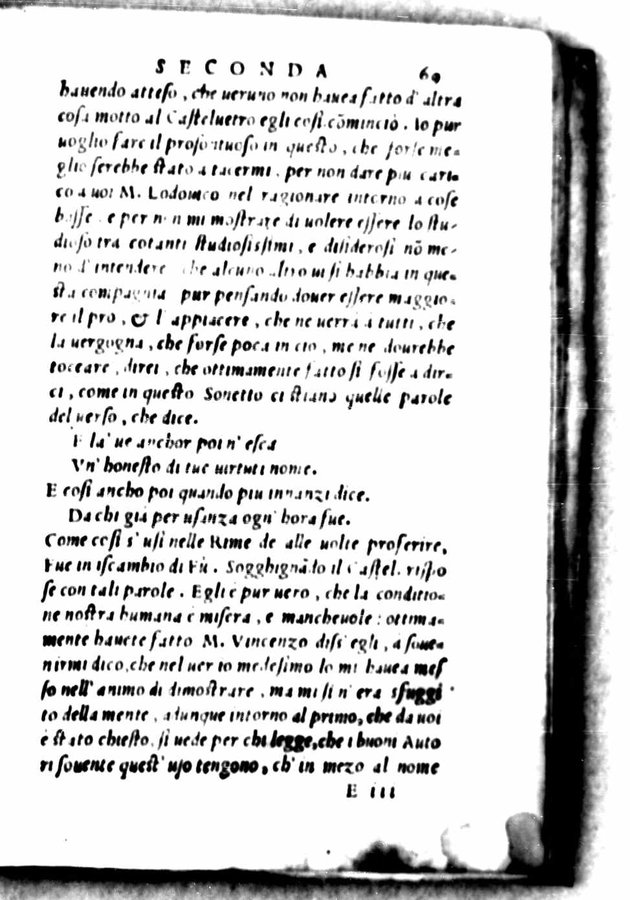 SECONDA 69
hauendo atteso, che ueruno non hauea fatto d'altra
cosa motto al Casteluetro egli cosi cõminciò. Io pur
uoglio fare il prosontuoso in questo, che forse me-
glio serebbe stato a tacermi, per non dare piu cari-
co a uoi M. Lodouico nel ragionare intorno a cose
basse, e per non mi mostrare di uolere essere lo stu-
dioso tra cotanti studiosissimi, e disiderosi nõ me-
no d'intendere che alcuno altro ui si habbia in que-
sta compagnia pur pensando douer essere maggio-
re il pro, & l'appiacere, che ne uerrà à tutti, che
la uergogna, che forse poca in cio, me ne dourebbe
toccare, direi, che ottimamente fatto si fosse a dir-
ci, come in questo Sonetto ci stiano quelle parole
del uerso, che dice.
E la' ue anchor poi n'esca
Vn' honesto di tue uirtuti nome.
E cosi ancho poi quando piu innanzi dice.
Da chi già per usanza ogn' hora fue.
Come cosi s'usi nelle Rime de alle uolte proferire,
Fue in iscambio di Fù. Sogghignãdo il Castel. rispo
se con tali parole. Egli è pur uero, che la conditio-
ne nostra humana è misera, e mancheuole: ottima-
mente hauete fatto M. Vincenzo diss'egli, a soue-
nirmi dico, che nel uer io medesimo lo mi hauea mes
so nell' animo di dimostrare, ma mi si n'era sfuggi
to della mente, adunque intorno al primo, che da uoi
è stato chiesto, si uede per chi legge, che i buoni Auto
ri souente quest' uso tengono, ch' in mezo al nome
E iii